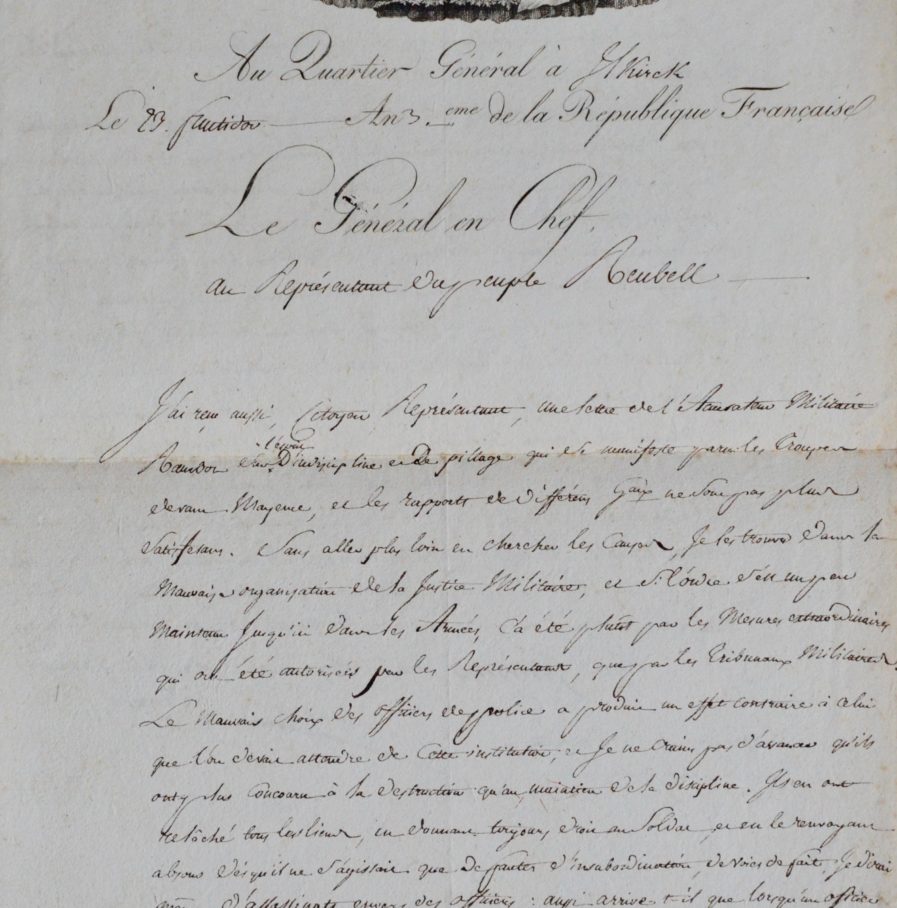 Au Quartier Général à Illkirck
Le 23. fructidor An 3 eme de la République Française
Le Général en Chef,
au Représentant du peuple Reubell
J'ai reçu aussi, Citoyen Représentant, une lettre de l'Accusateur Militaire
sur l'esprit D'indiscipline et De pillage qui se manifeste parmi les Troupes
devant Mayence, et les rapports de différens Gaux ne sont pas plus
satisfesans. Sans aller plus loin en chercher les Causes, Je les trouve dans la
Mauvaise organisation de la Justice Militaire, et si l'ordre s'est un peu
Maintenu Jusqu'ici dans les Armées, ç'a été plutôt par les Mesures extraordinaires
qui ont été autorisées par les Représentans, que par les Tribunaux Militaires.
Le Mauvais choix des officiers de police a produit un effet contraire à celui
que l'on devait attendre de Cette institution, et Je ne crains pas d'avancer qu'ils
ont plus Concouru à la destruction qu'au maintien de la discipline. Ils en ont
relâché tous les liens, en donnant toujours droit au Soldat, et en le renvoyant
absous dès qu'il ne s'agissait que de fautes d'insubordination, de voies de fait, Je dirai
d'assassinats envers des officiers : aussi arrive t-il que lorsqu'un officier